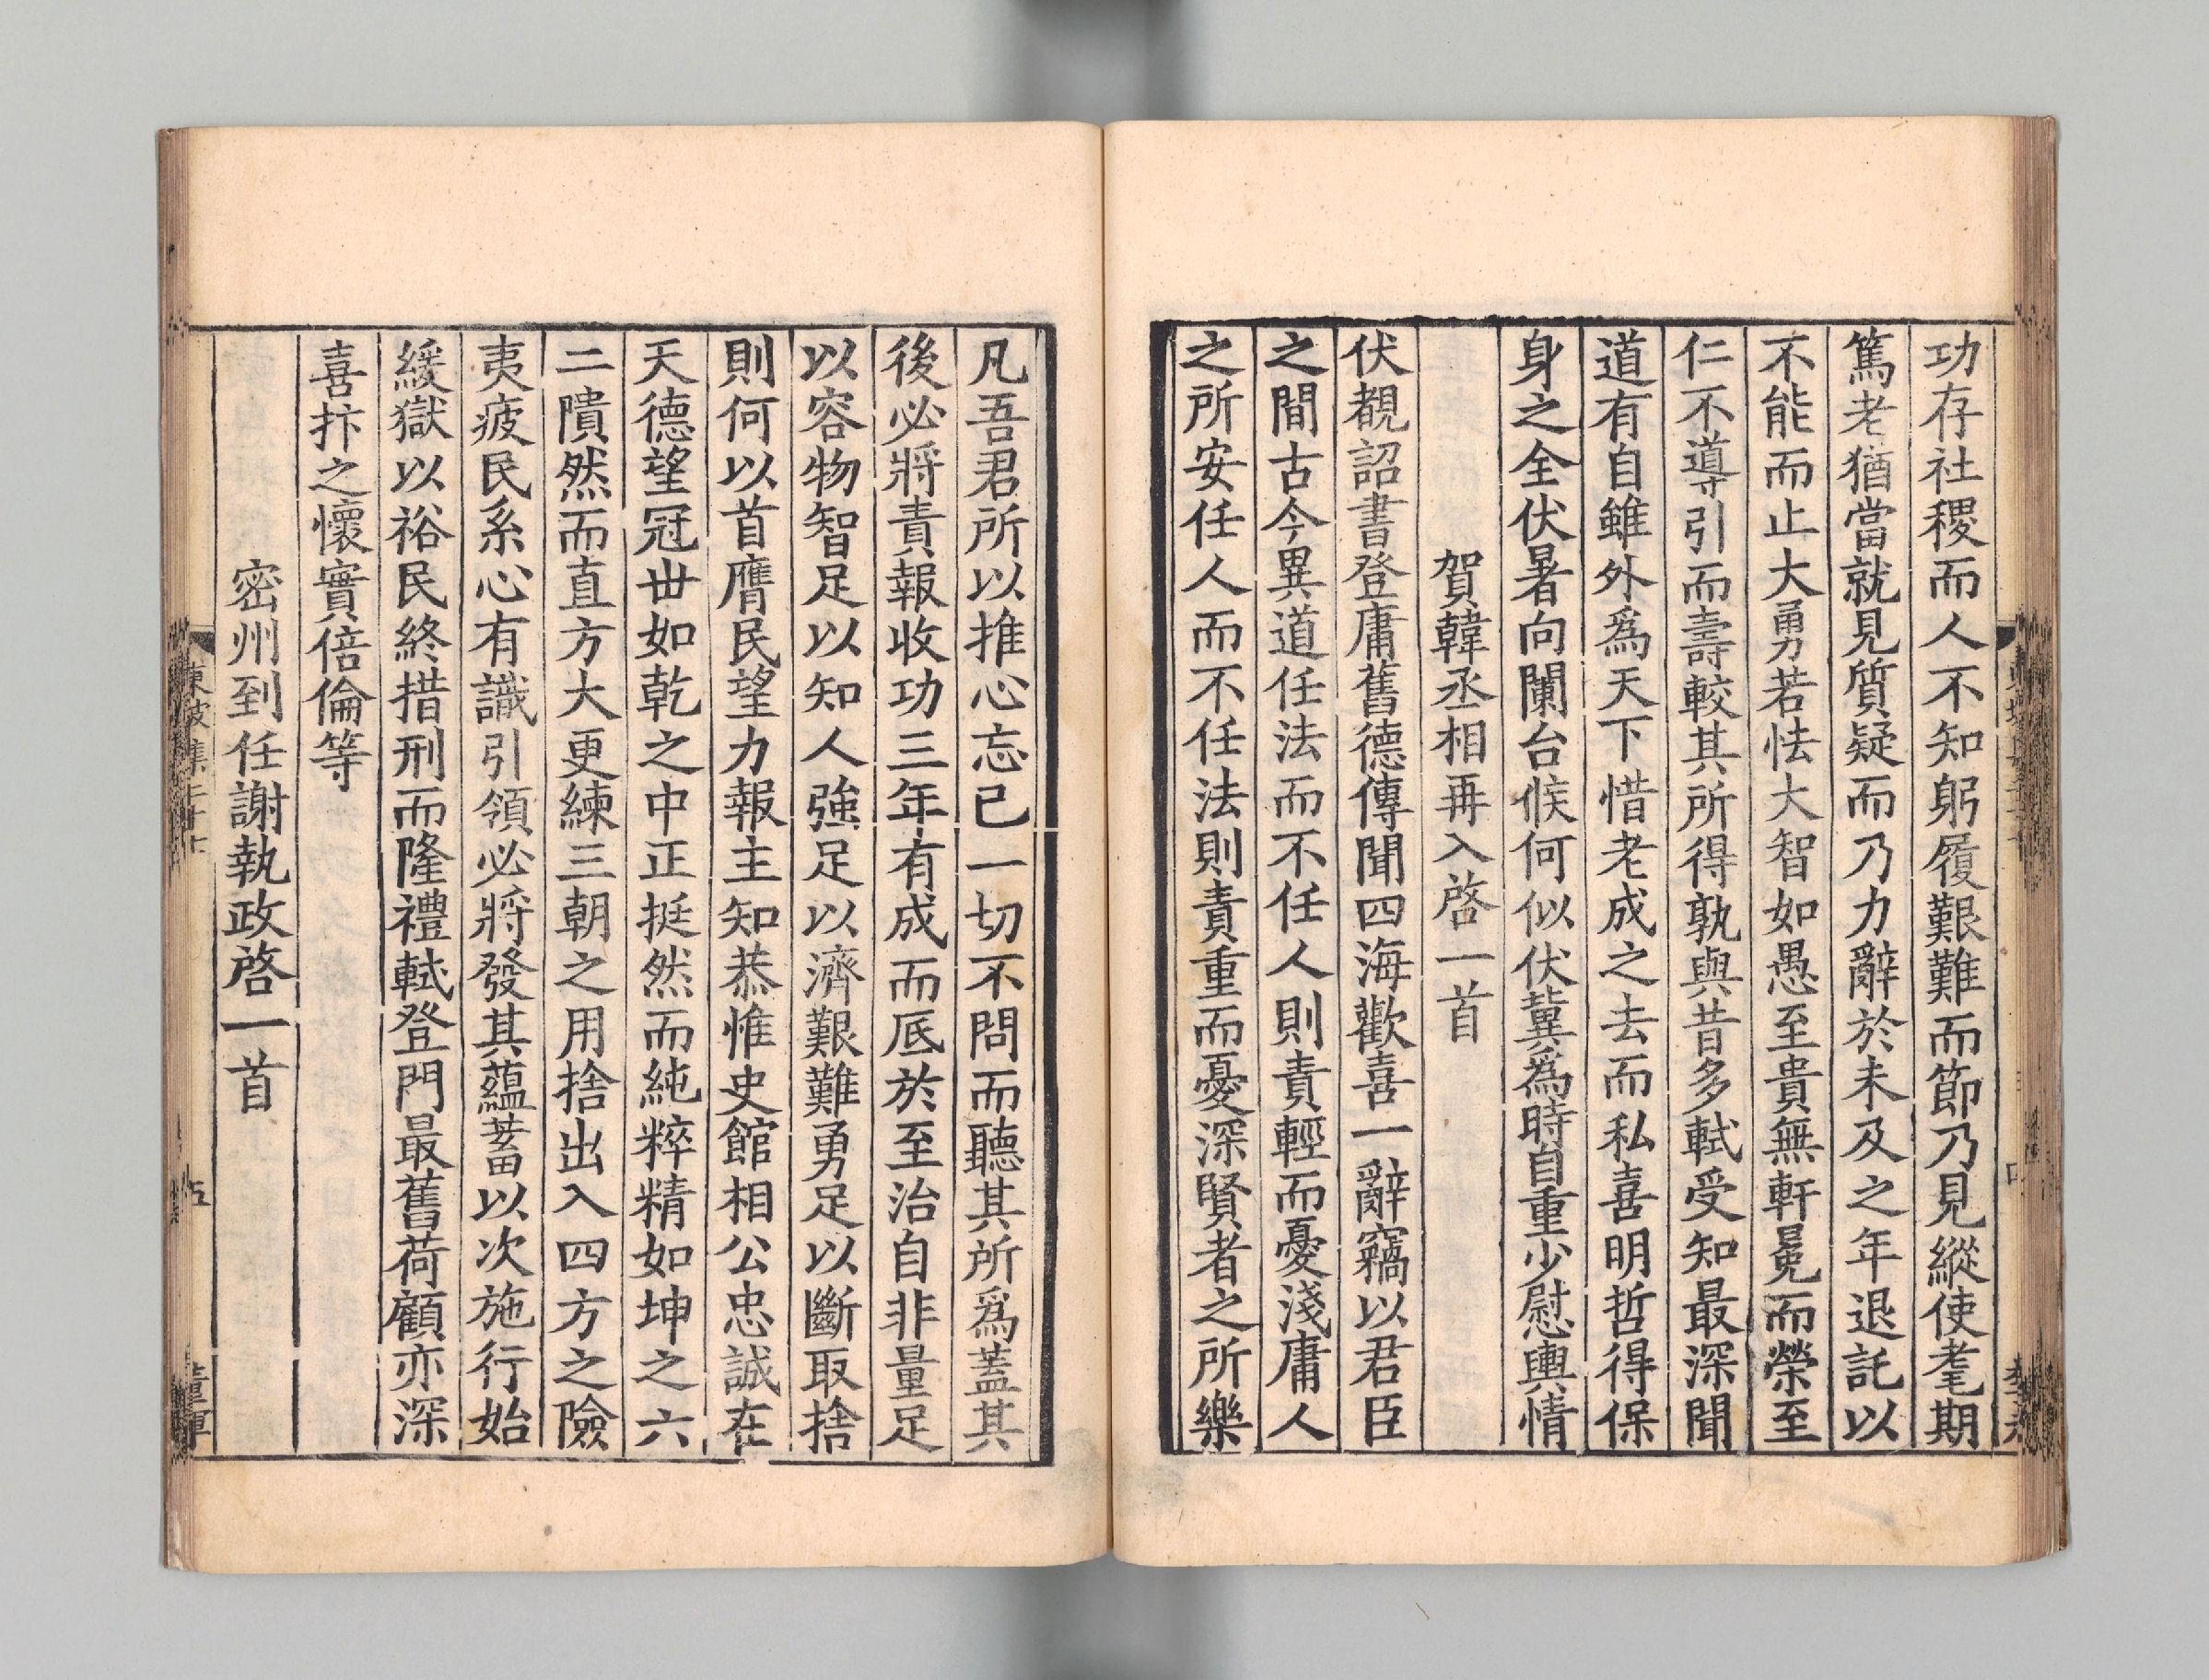 功存社稷而人不知躬履艱難而節乃見縱使耄期
篤老猶當就見質疑而乃力辭於未及之年退託以
不能而止大勇若怯大智如愚至貴無軒冕而榮至
仁不導引而壽較其所得孰與昔多軾受知最深聞
道有自雖外爲天下惜老成之去而私喜明哲得保
身之全伏暑向闌台候何似伏冀爲時自重少慰輿情
賀韓丞相再入啓一首
伏覩詔書登庸舊德傳聞四海歡喜一辭竊以君臣
之間古今異道任法而不任人則責輕而憂淺庸人
之所安任人而不任法則責重而憂深賢者之所樂
凡吾君所以推心忘己一切不問而聽其所爲蓋其
後必將責報收功三年有成而底於至治自非量足
以容物智足以知人強足以濟艱難勇足以斷取捨
則何以首膺民望力報主知恭惟史館相公忠誠在
天德望冠世如乾之中正挺然而純粹精如坤之六
二隤然而直方大更練三朝之用捨出入四方之險
夷疲民系心有識引領必將發其蘊蓄以次施行始
緩獄以裕民終措刑而隆禮軾登門最舊荷顧亦深
喜抃之懷實倍倫等
密州到任謝執政啓一首
東坡集二十七
五